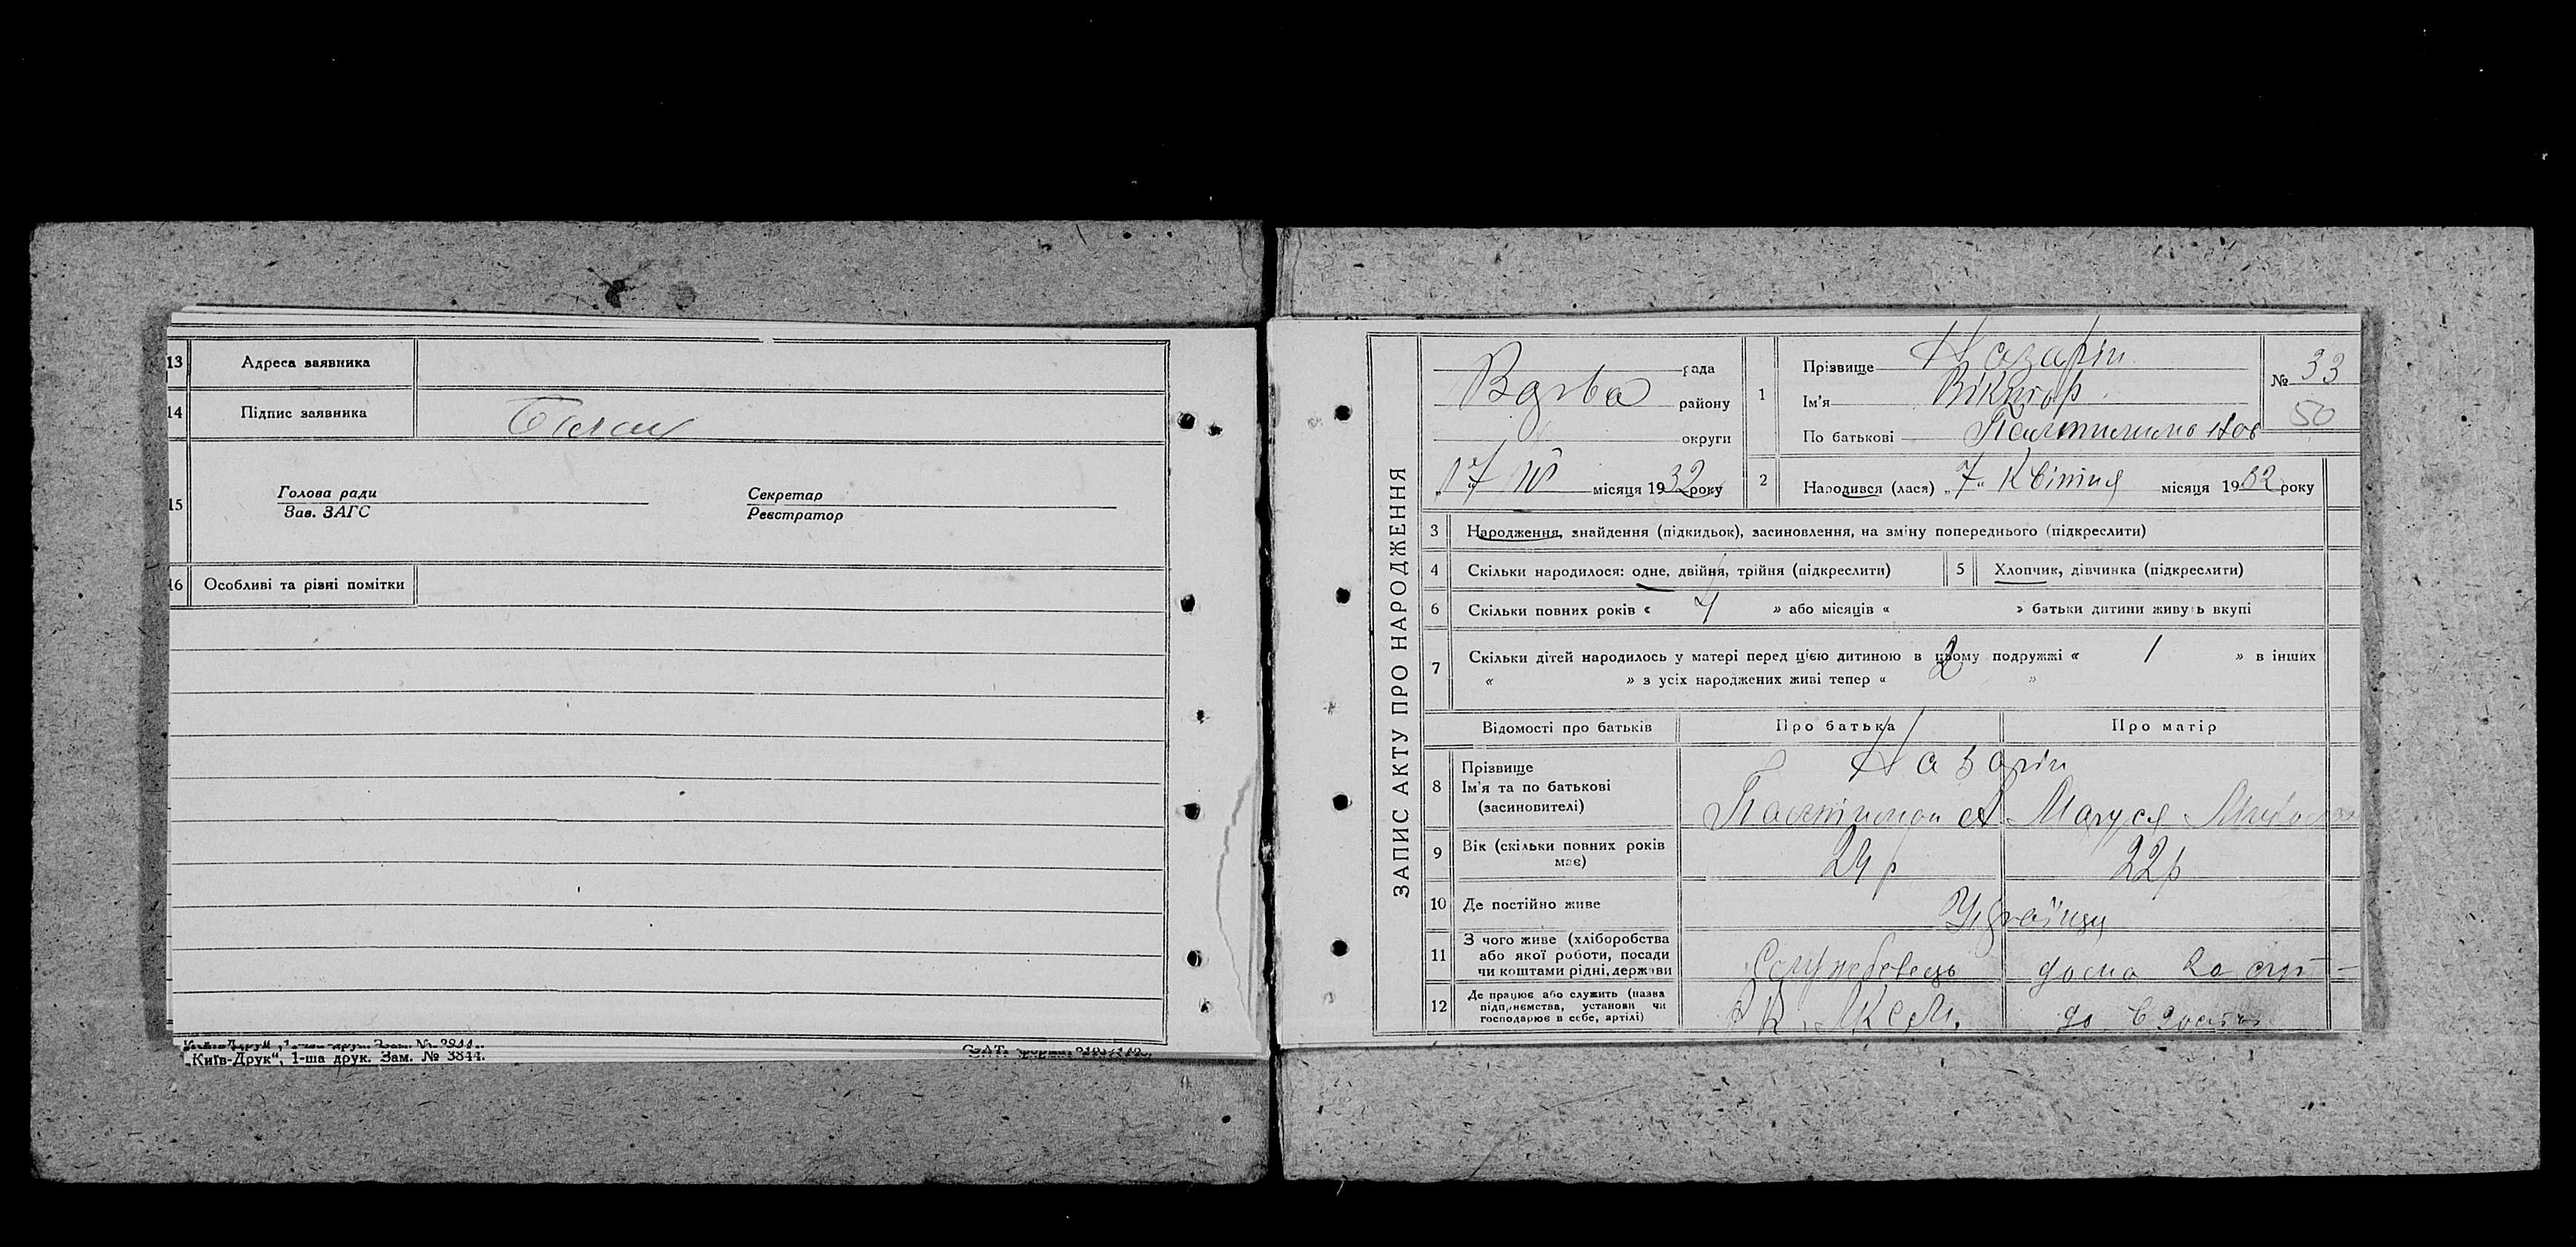 13 Адреса заявника
14 Підпис заявника
15 Голова ради Секретар
Зав. ЗАГС Реєстратор
16 Особливі та різні помітки
„Київ-Друк“, 1-ша друк. Зам. № 3844.
ЗАПИС АКТУ ПРО НАРОДЖЕННЯ
рада
Варва району
округи
17 місяця 1932 року
1 Прізвище Назарін
Ім'я Віктор
По батькові
№ 33
50
2 Народився (лася) „7“ Квітня місяця 1932 року
3 Народження, знайдення (підкидьок), засиновлення, на зміну попереднього (підкреслити)
4 Скільки народилося: одне, двійня, трійня (підкреслити) 5 Хлопчик, дівчинка (підкреслити)
6 Скільки повних років « 4 » або місяців « » батьки дитини живуть вкупі
7 Скільки дітей народилось у матері перед цією дитиною в цьому подружжі « 1 » в інших
« » з усіх народжених живі тепер « 2 »
Відомості про батьків Про батька Про матір
8 Прізвище Назарін
Ім'я та по батькові
(засиновителі) Маруся
9 Вік (скільки повних років має) 24 р 22 р
10 Де постійно живе Українці
11 З чого живе (хліборобства
або якої роботи, посади
чи коштами рідні, держави
12 Де працює або служить (назва
підприємства, установи чи
господарює в себе, артілі) Р К ЛКСМ.